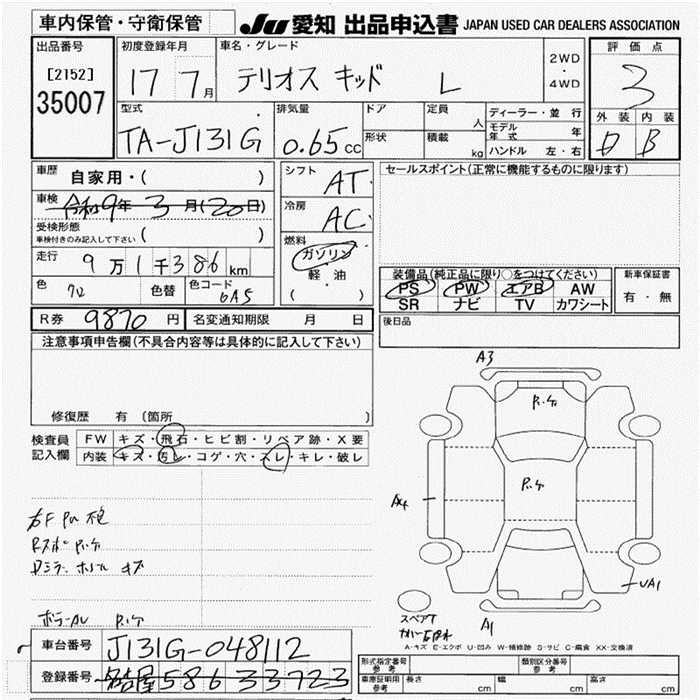 車内保管・守衛保管
JU 愛知 出品申込書 JAPAN USED CAR DEALERS ASSOCIATION
出品番号
[2152]
35007
初度登録年月
17 7月
車名・グレード
テリオス キッド L
2WD
・
4WD
評価点
3
外装 内装
D B
型式
TA-J131G
排気量
0.65 cc
ドア
形状
定員
人
積載
kg
ディーラー・並行
モデル年式 年
ハンドル 左・右
車歴
自家用・( )
車検
令和9年 3月(20日)
受検形態
車検付きのみ記入して下さい ( )
走行
9万1千386km
色
色替
色コード
6A5
シフト
AT
冷房
AC
燃料
ガソリン
軽油
( )
セールスポイント(正常に機能するものに限ります)
装備品(純正品に限り○をつけてください)
PS PW エアB AW
SR ナビ TV カワシート
新車保証書
有・無
R券 9870円
名変通知期限 月 日
後日品
注意事項申告欄(不具合内容等は具体的に記入して下さい)
修復歴 有 〔箇所 〕
検査員
記入欄
FW キズ・飛石・ヒビ割・リペア跡・X要
内装 キズ・汚レ・コゲ・穴・スレ・キレ・破レ
A3
A4
UA1
A1
スペアT
A-キズ E-エクボ U-凹み W-補修跡 S-サビ C-腐食 XX-交換済
車台番号
J131G-048112
登録番号
名古屋586 33723
形式指定番号
参考
類別区分番号
参考
車庫証明用
参考
長さ cm
幅 cm
高さ cm